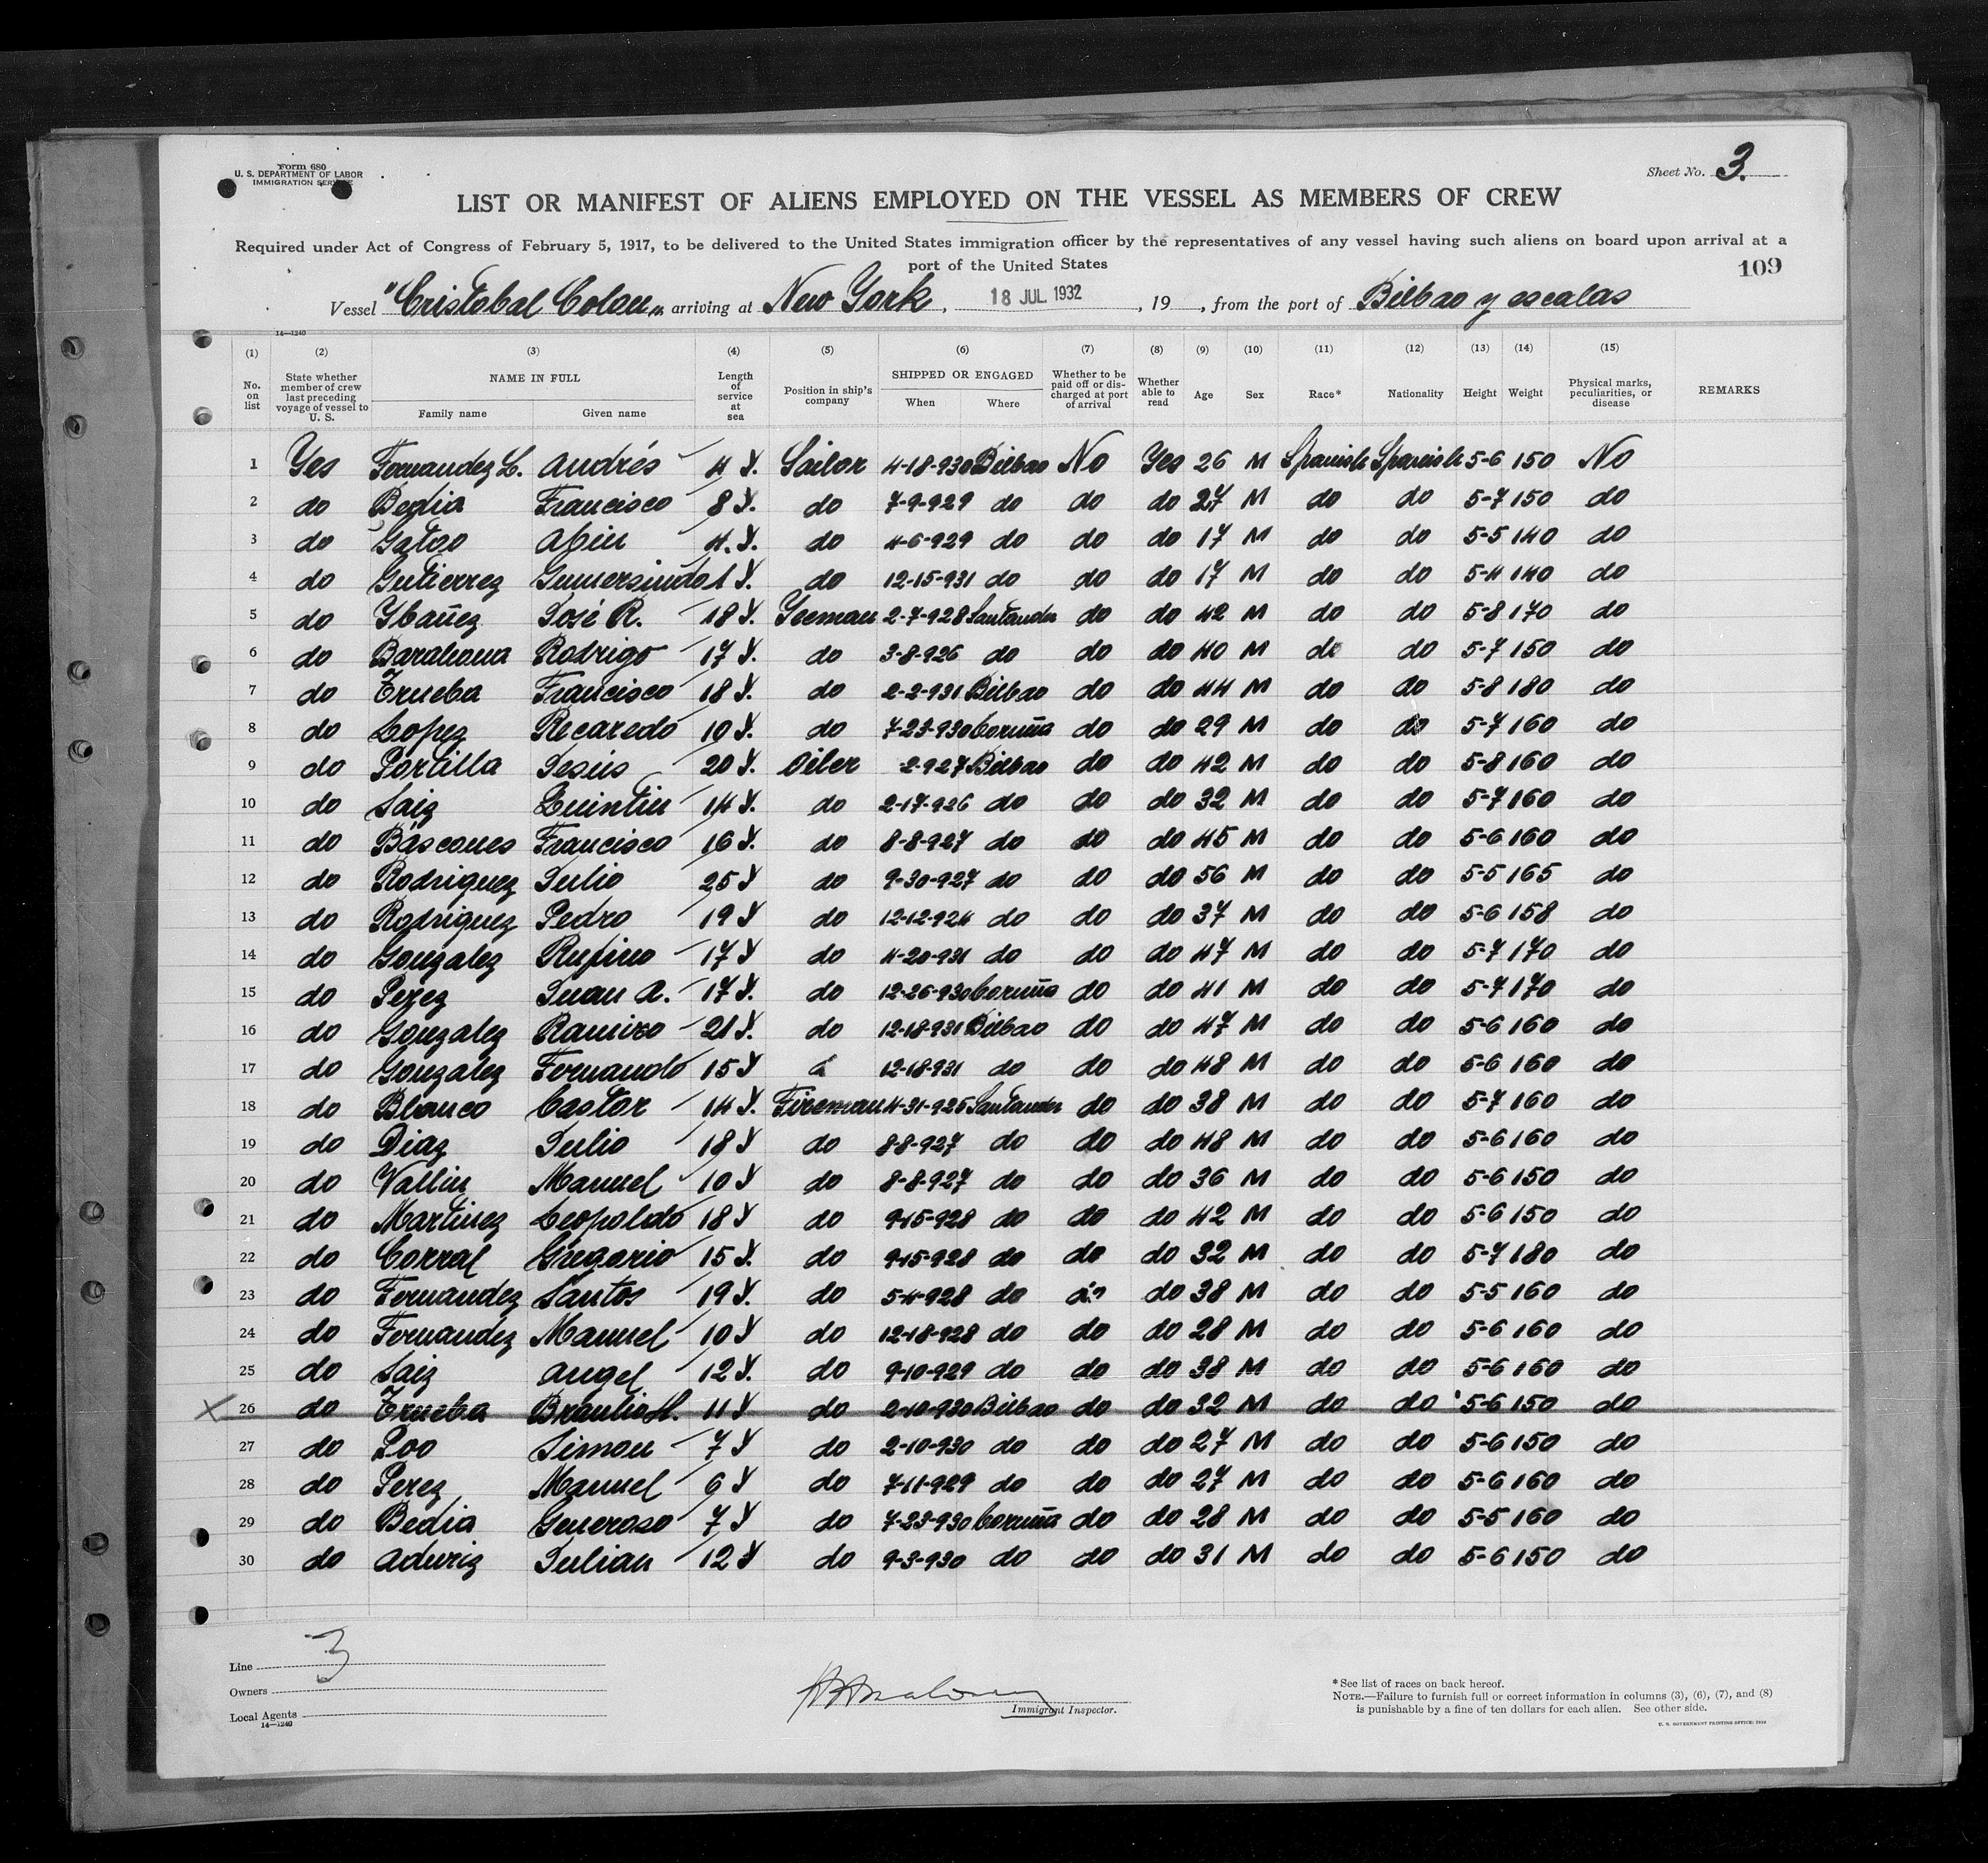 Form 680
U. S. DEPARTMENT OF LABOR
IMMIGRATION SERVICE
Sheet No. 3.
LIST OR MANIFEST OF ALIENS EMPLOYED ON THE VESSEL AS MEMBERS OF CREW
Required under Act of Congress of February 5, 1917, to be delivered to the United States immigration officer by the representatives of any vessel having such aliens on board upon arrival at a
port of the United States
109
Vessel "Cristobal Colon" arriving at New York, 18 JUL 1932, 19 , from the port of Bilbao y escalas
14—1240
(1) (2) (3) (4) (5) (6) (7) (8) (9) (10) (11) (12) (13) (14) (15)
No. on list State whether member of crew last preceding voyage of vessel to U. S. NAME IN FULL Family name Given name Length of service at sea Position in ship's company SHIPPED OR ENGAGED When Where Whether to be paid off or discharged at port of arrival Whether able to read Age Sex Race* Nationality Height Weight Physical marks, peculiarities, or disease REMARKS
1 Yes Fernandez L. Andrés 4 Y. Sailor 4-18-930 Bilbao No Yes 26 M Spanish Spanish 5-6 150 No
2 do Bedia Francisco 8 Y. do 7-9-929 do do do 27 M do do 5-7 150 do
3 do Gatoo Abin 4. Y. do 4-6-929 do do do 17 M do do 5-5 140 do
4 do Gutierrez Gumersindo 1 Y. do 12-15-931 do do do 17 M do do 5-4 140 do
5 do Ybañez José R. 18 Y. Yeeman 2-7-928 Santander do do 42 M do do 5-8 170 do
6 do Barahona Rodrigo 17 Y. do 3-8-926 do do do 40 M do do 5-7 150 do
7 do Trueba Francisco 18 Y. do 2-2-931 Bilbao do do 44 M do do 5-8 180 do
8 do Lopez Recaredo 10 Y. do 7-23-930 Coruña do do 29 M do do 5-7 160 do
9 do Portilla Jesús 20 Y. Oiler 2-927 Bilbao do do 42 M do do 5-8 160 do
10 do Saiz Quintin 14 Y. do 2-17-926 do do do 32 M do do 5-7 160 do
11 do Báscones Francisco 16 Y. do 8-8-927 do do do 45 M do do 5-6 160 do
12 do Rodriguez Julio 25 Y do 9-30-927 do do do 56 M do do 5-5 165 do
13 do Rodriguez Pedro 19 Y do 12-12-924 do do do 37 M do do 5-6 158 do
14 do Gonzalez Rufino 17 Y do 4-20-931 do do do 47 M do do 5-7 170 do
15 do Perez Juan A. 17 Y. do 12-26-930 Coruña do do 41 M do do 5-7 170 do
16 do Gonzalez Ramiro 21 Y. do 12-18-931 Bilbao do do 47 M do do 5-6 160 do
17 do Gonzalez Fernando 15 Y 12-18-931 do do do 48 M do do 5-6 160 do
18 do Blanco Castor 14 Y. Fireman 4-31-926 Santander do do 38 M do do 5-7 160 do
19 do Diaz Julio 18 Y do 8-8-927 do do do 48 M do do 5-6 160 do
20 do Vallin Manuel 10 Y do 8-8-927 do do do 36 M do do 5-6 150 do
21 do Martinez Leopoldo 18 Y do 9-15-928 do do do 42 M do do 5-6 150 do
22 do Corral Gregorio 15 Y. do 9-15-928 do do do 32 M do do 5-7 180 do
23 do Fernandez Santos 19 Y. do 5-4-928 do do do 38 M do do 5-5 160 do
24 do Fernandez Manuel 10 Y do 12-18-928 do do do 28 M do do 5-6 160 do
25 do Saiz Angel 12 Y. do 9-10-929 do do do 38 M do do 5-6 160 do
X 26 do Trueba Braulio H. 11 Y do 2-10-930 Bilbao do do 32 M do do 5-6 150 do
27 do Poo Simon 7 Y do 2-10-930 do do do 27 M do do 5-6 150 do
28 do Perez Manuel 6 Y do 7-11-929 do do do 27 M do do 5-6 160 do
29 do Bedia Generoso 7 Y do 7-23-930 Coruña do do 28 M do do 5-5 160 do
30 do Aduriz Julian 12 Y do 9-3-930 do do do 31 M do do 5-6 150 do
Line 3
Owners
Local Agents
14—1240
Immigrant Inspector.
*See list of races on back hereof.
NOTE.—Failure to furnish full or correct information in columns (3), (6), (7), and (8)
is punishable by a fine of ten dollars for each alien. See other side.